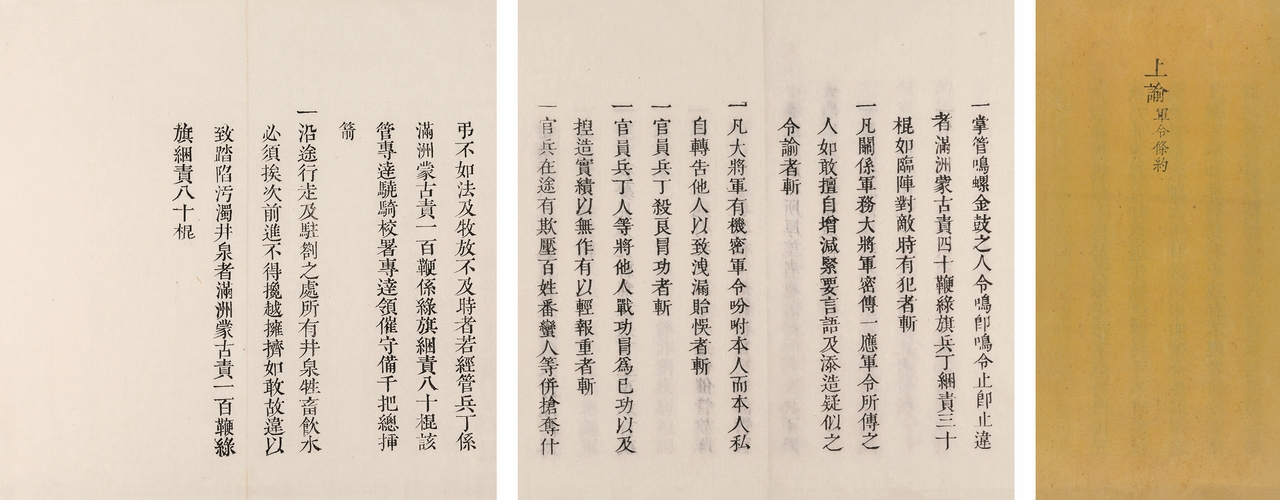 上諭軍令條約
一掌管鳴螺金鼓之人令鳴卽鳴令止卽止違
者滿洲蒙古責四十鞭綠旗兵丁綑責三十
棍如臨陣對敵時有犯者斬
一凡關係軍務大將軍密傳一應軍令所傳之
人如敢擅自增減緊要言語及添造疑似之
令諭者斬
一凡大將軍有機密軍令吩咐本人而本人私
自轉告他人以致洩漏貽悞者斬
一官員兵丁殺良冒功者斬
一官員兵丁人等將他人戰功冒爲已功以及
揑造實績以無作有以輕報重者斬
一官兵在途有欺壓百姓番蠻人等併搶奪什
弔不如法及牧放不及時者若經管兵丁係
滿洲蒙古責一百鞭係綠旗綑責八十棍該
管專達驍騎校署專達領催守備千把總揷
箭
一沿途行走及駐劄之處所有井泉牲畜飲水
必須挨次前進不得攙越擁擠如敢故違以
致踏陷污濁井泉者滿洲蒙古責一百鞭綠
旗綑責八十棍